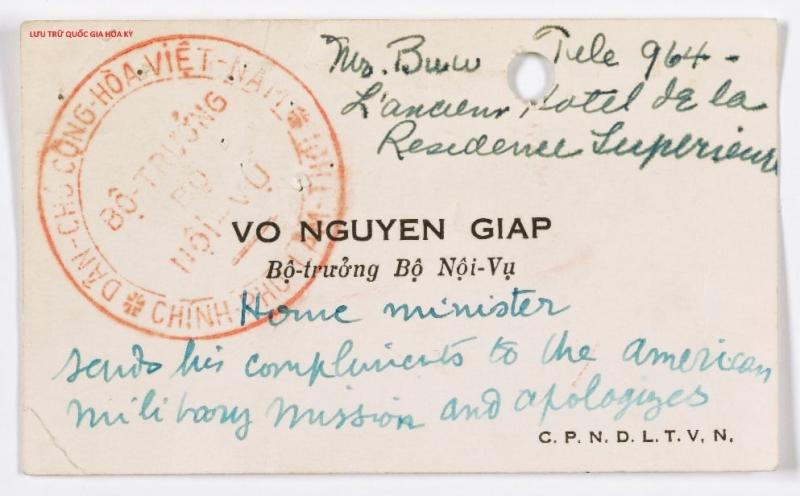 LƯU TRỮ QUỐC GIA HOA KỲ
Mr. Buu Tele 964 -
L'ancien Hotel de la
Residence Superieure
DÂN-CHỦ CỘNG-HÒA VIỆT-NAM
CHÍNH-PHỦ LÂM-THỜI
BỘ-TRƯỞNG
BỘ
NỘI-VỤ
VO NGUYEN GIAP
Bộ-trưởng Bộ Nội-Vụ
Home minister
sends his compliments to the american
military mission and apologizes
C. P. N. D. L. T. V, N.